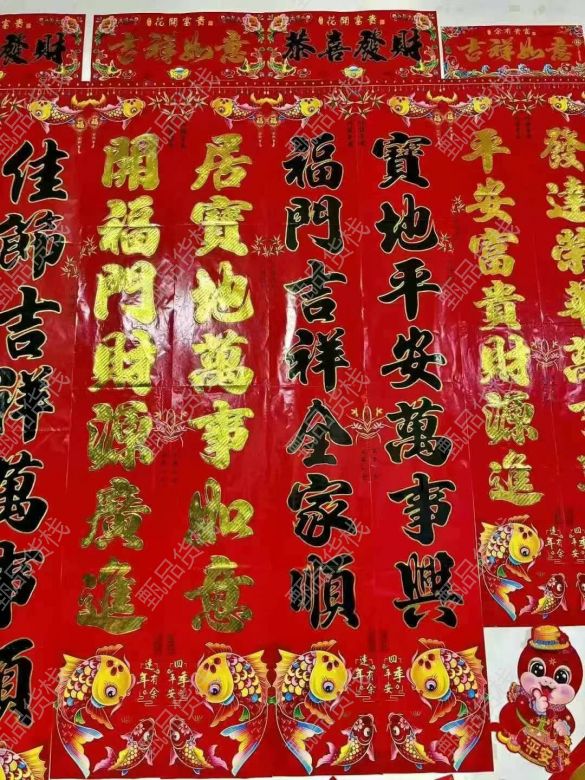 富貴開花
富貴開花
富貴有余
發財
吉祥如意
恭喜發財
吉祥如意
發達榮華萬
平安富貴財源進
寶地平安萬事興
福門吉祥全家順
居寶地萬事如意
開福門財源廣進
佳節吉祥萬事順
四季平安
連年有余
四季平安
連年有余
連年有余
平安
甄品货栈